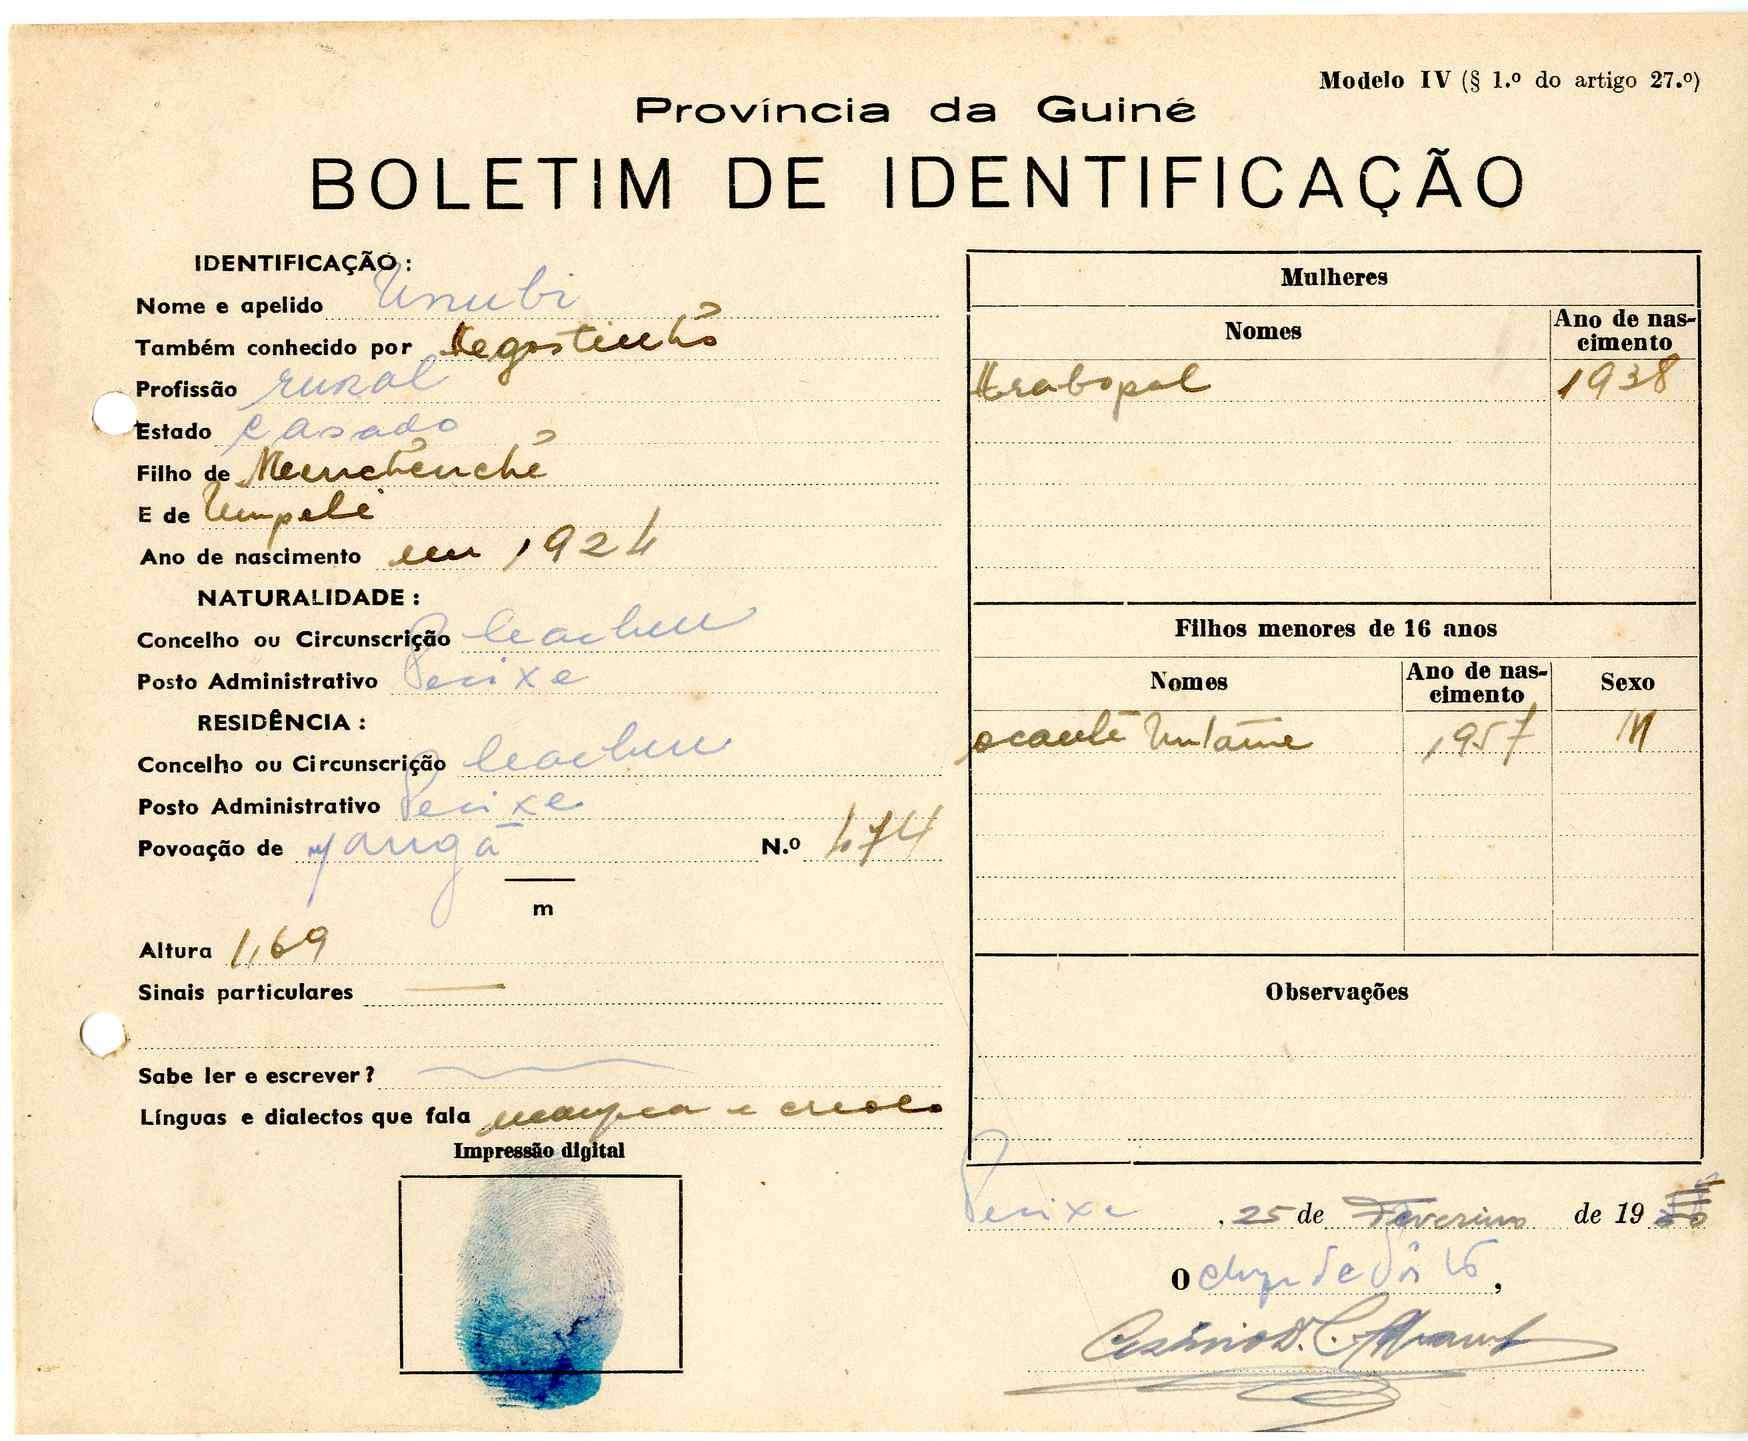 Modelo IV (§ 1.º do artigo 27.º)
Província da Guiné
BOLETIM DE IDENTIFICAÇÃO
IDENTIFICAÇÃO:
Nome e apelido Unubi
Também conhecido por
Profissão rural
Estado Casado
Filho de
E de
Ano de nascimento em 1924
NATURALIDADE:
Concelho ou Circunscrição Cacheu
Posto Administrativo Pecixe
RESIDÊNCIA:
Concelho ou Circunscrição Cacheu
Posto Administrativo Pecixe
Povoação de N.º 474
m
Altura 1,69
Sinais particulares
Sabe ler e escrever?
Línguas e dialectos que fala e
Impressão digital
Mulheres
Nomes
Ano de nas-
cimento
1938
Filhos menores de 16 anos
Nomes
Ano de nas-
cimento
Sexo
1957 M
Observações
Pecixe, 25 de Fevereiro de 19
O chefe de Pôsto,